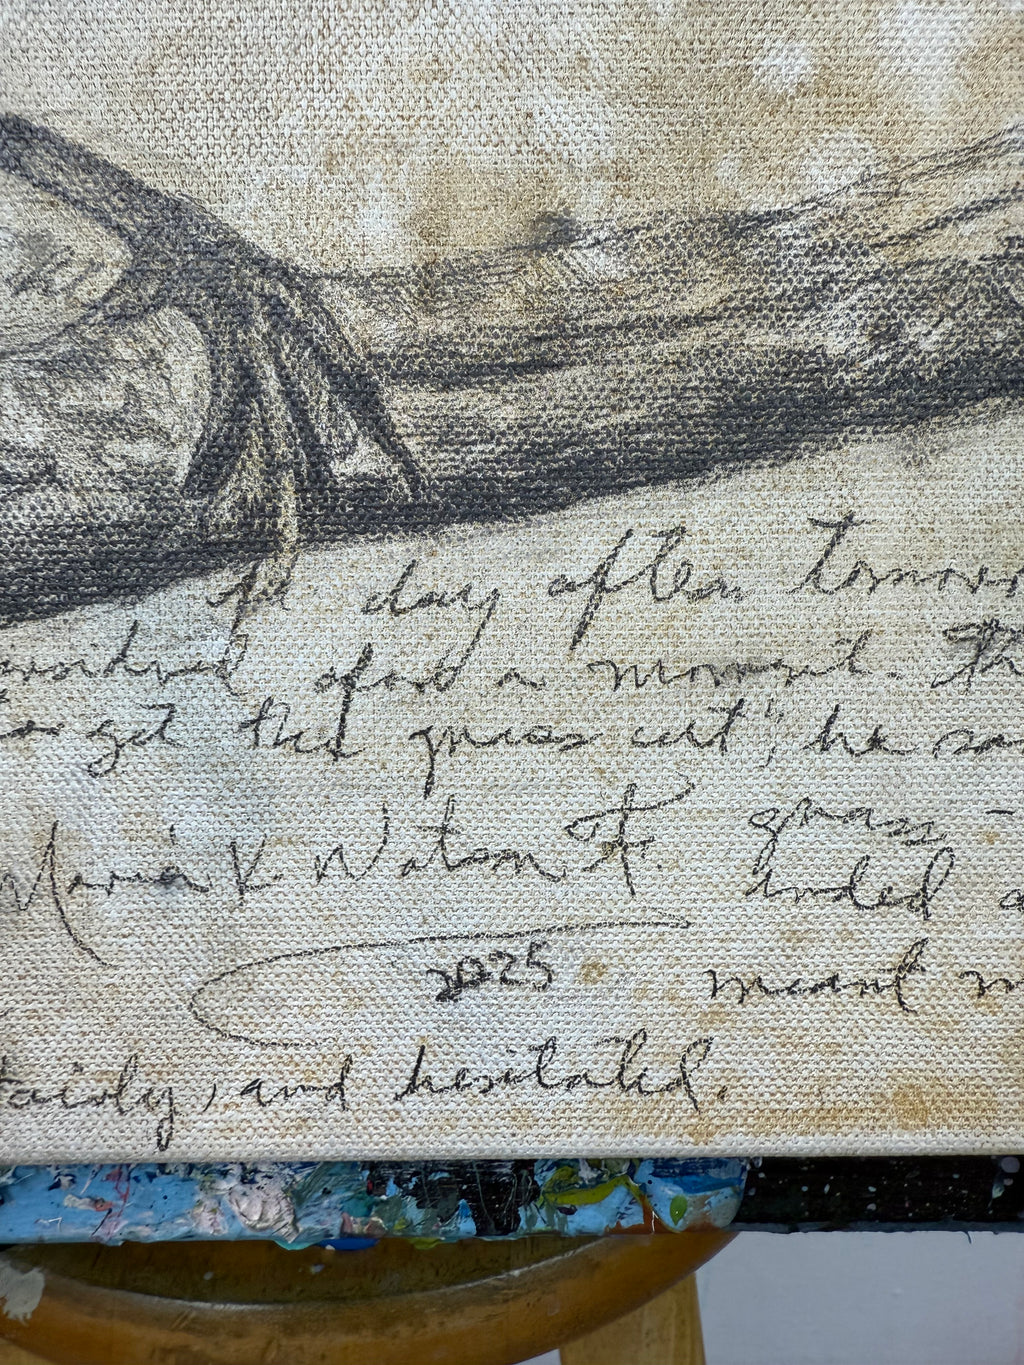 day after tomorro
for a moment. Th
get that grass cut", he sa
María V. Watson F. grass -
ended a
2025
meant m
tainly, and hesitated.